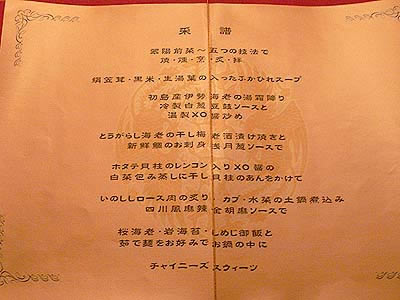 采譜
前菜～五つの技法で
絹笠茸・黒米・生湯葉の入ったふかひれスープ
初島産伊勢海老の湯霜降り
冷製白葱豆鼓ソースと
温製XO醤炒め
とうがらし海老の干し梅老酒漬け焼きと
新鮮鯛のお刺身浅月葱ソースで
ホタテ貝柱のレンコン入りXO醤の
白菜包み蒸しに干し貝柱のあんをかけて
いのししロース肉の炙り・カブ・水菜の土鍋煮込み
四川風麻辣金胡麻ソースで
桜海老・岩海苔・しめじ御飯と
茹で麺をお好みでお鍋の中に
チャイニーズスウィーツ